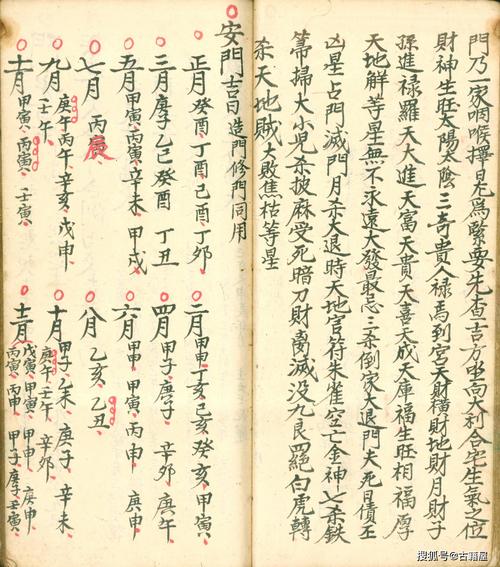 門乃一家咽喉擇日尤爲緊要先查吉方出向大利合宅生氣之位
財神生旺太陽太陰三奇貴人祿馬到宮天財橫財地財月財子
孫進祿羅天大進天富天貴天喜天成天庫福生旺相福厚
天地解等星無不永遠大發最忌三杀倒家大退門夫死日債丕
凶星占門滅門月杀大退時天地官符朱雀空亡金神七杀鉄
箒掃大小兒杀披麻受死暗刀財离滅没九良四絕白虎轉
杀天地賊大敗焦枯等星
安門吉日造門修門同用
正月癸酉、丁酉、己酉、丁夘
三月庚子乙巳癸酉丁丑
五月甲寅、丙寅、辛未、甲戌
七月丙寅
九月庚午丙午、辛亥、戊申、壬午、
十一月甲寅、丙寅、壬寅、
二月甲申丁亥己亥癸亥甲寅、
四月甲子、庚子、辛夘、庚午、
六月甲申、丙申、庚申
八月乙亥、乙丑、
十月甲子乙未、庚子辛未
庚午、壬午、辛夘
十二月戊寅、甲寅、甲申、庚申
丙寅、丙申、甲子、庚子壬寅、
搜狐号@古籍屋